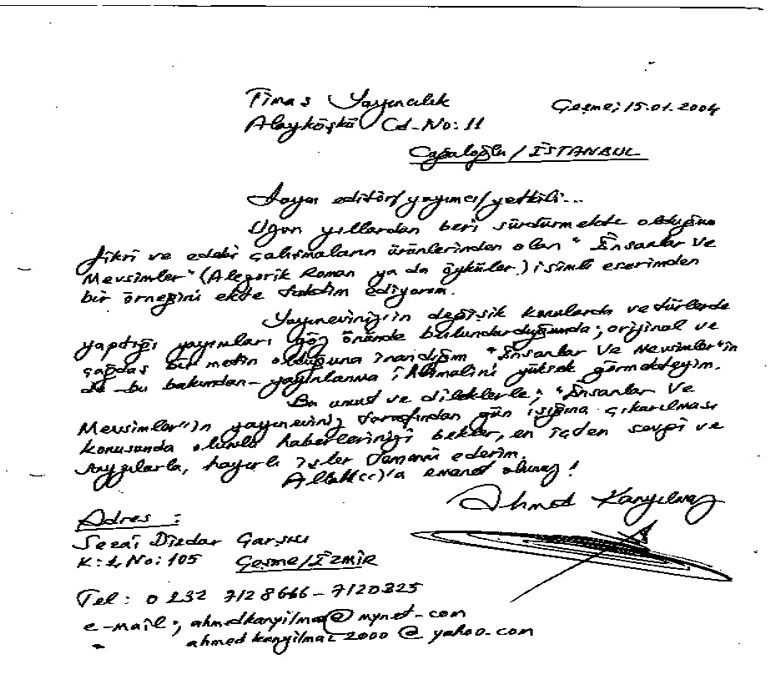 Timaş Yayıncılık
Çeşme, 15.01.2004
Alayköşkü Cd. No: 11
Cağaloğlu / İSTANBUL
Sayın editör/yayıncı/yetkili...
Uzun yıllardan beri sürdürmekte olduğum
fikri ve edebi çalışmaların ürünlerinden olan "İnsanlar ve
Mevsimler" (Alegorik Roman ya da öyküler.) isimli eserimden
bir örneğini ekte takdim ediyorum.
Yayınevinizin değişik konularda ve türlerde
yaptığı yayınları göz önünde bulundurduğumda; orijinal ve
çağdaş bir metin olduğuna inandığım "İnsanlar Ve Mevsimler"in
de -bu bakımdan- yayınlanma ihtimalini yüksek görmekteyim.
Bu umut ve dileklerle; "İnsanlar Ve
Mevsimler"in yayıneviniz tarafından gün ışığına çıkarılması
konusunda olumlu haberlerinizi bekler, en içten sevgi ve
saygılarla, hayırlı işler temenni ederim.
Allah(cc)'a emanet olunuz!
Ahmed Kanyılmaz
Adres :
Sezai Dizdar Çarşısı
K: 2, No: 105 Çeşme/İZMİR
Tel: 0 232 7128666 - 7120325
e-mail; ahmedkanyilmaz@mynet.com
ahmedkanyilmaz2000@yahoo.com